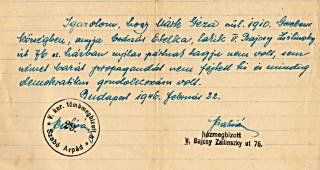 Igazolom, hogy Márk Géza szül. 1910.
községben, anyja Etelka, lakik V. Bajcsy Zsilinszky
út 76 a. házban nyilas pártnak tagja nem volt, sem
német barát propagandát nem fejtett ki és mindig
demokratikus gondolkozású volt.
Budapest 1946. február 22.
V. ker. tömbmegbizott
Szabó Árpád
házmegbizott
V. Bajcsy Zsilinszky ut 76.